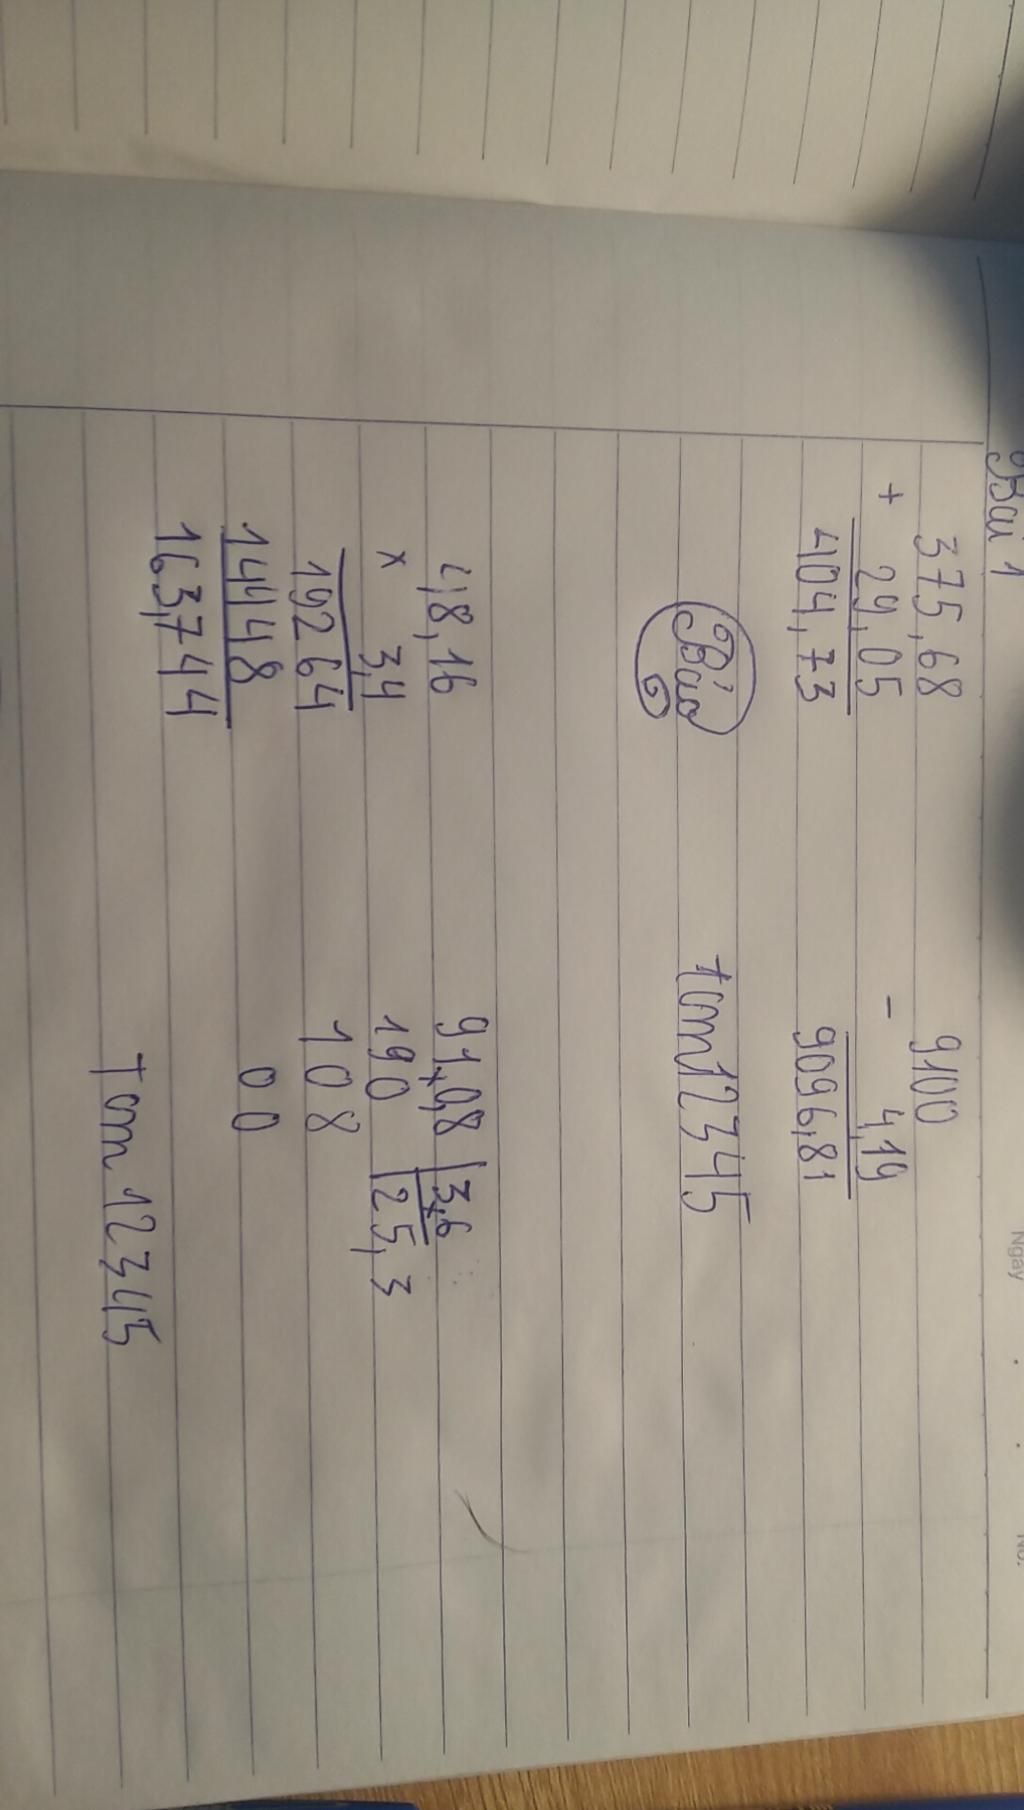 Ngày
No.
Bài 1
375,68
+
29,05
404,73
9100
-
4,19
9096,81
Bảo
tom12345
48,16
x
3,4
19264
14448
163,744
91,0,8 | 3,6
190 | 25,3
108
00
Tom 12345